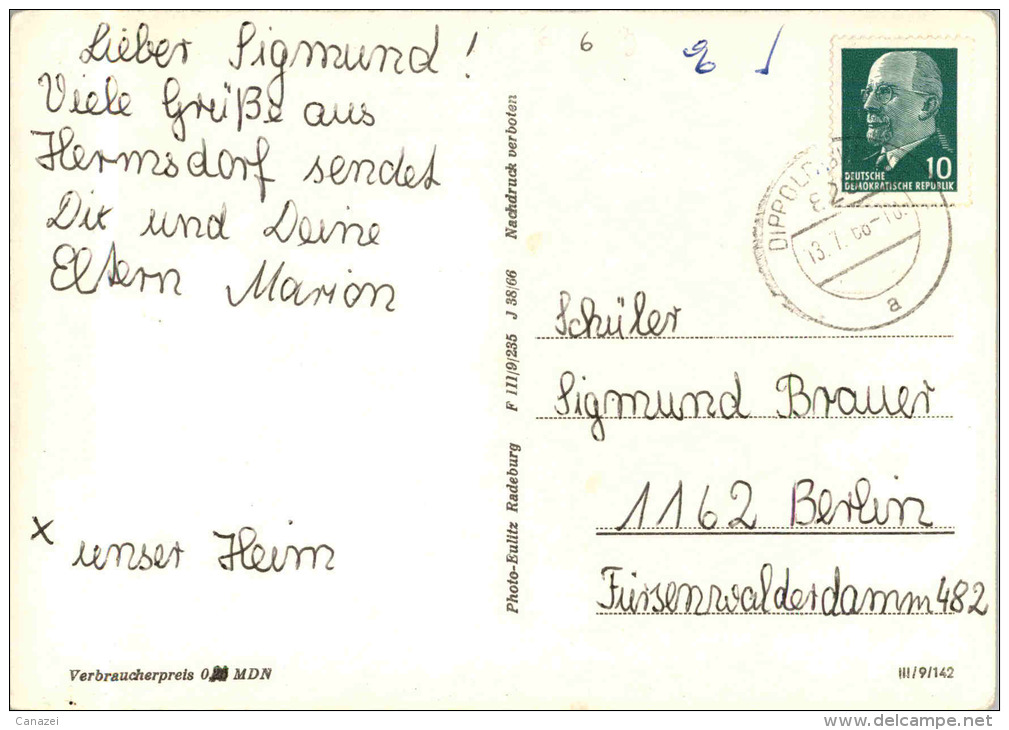 Lieber Sigmund!
Viele Grüße aus
Hermsdorf sendet
Dir und Deine
Eltern Marion
x unser Heim
Verbraucherpreis 0, MDN
Photo-Eulitz Radeburg F III/9/235 J 38/66 Nachdruck verboten
6
DEUTSCHE 10
DEMOKRATISCHE REPUBLIK
13.7.66-18
a
Schüler
Sigmund Brauer
1162 Berlin
Fürsenwalderdamm 482
III/9/142
Canazei
www.delcampe.net